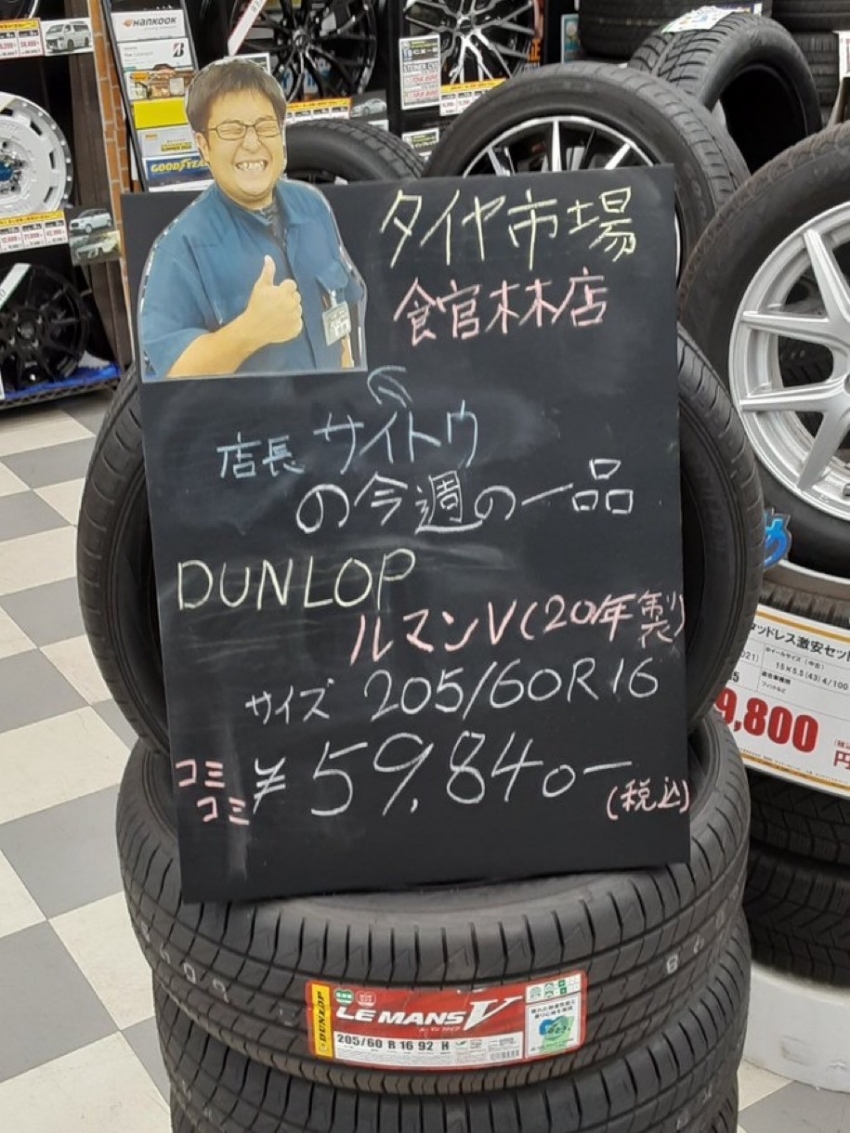 HANKOOK
GOODYEAR
タイヤ市場
館林店
店長 サイトウ
の今週の一品
DUNLOP
ルマンV(20年製)
サイズ 205/60R16
コミコミ ¥59,840ー
(税込)
タッドレス激安セット
ホイールサイズ (中古)
15×5.5(43)4/100
9,800
円
DUNLOP
LE MANS V
205/60 R 16 92 H